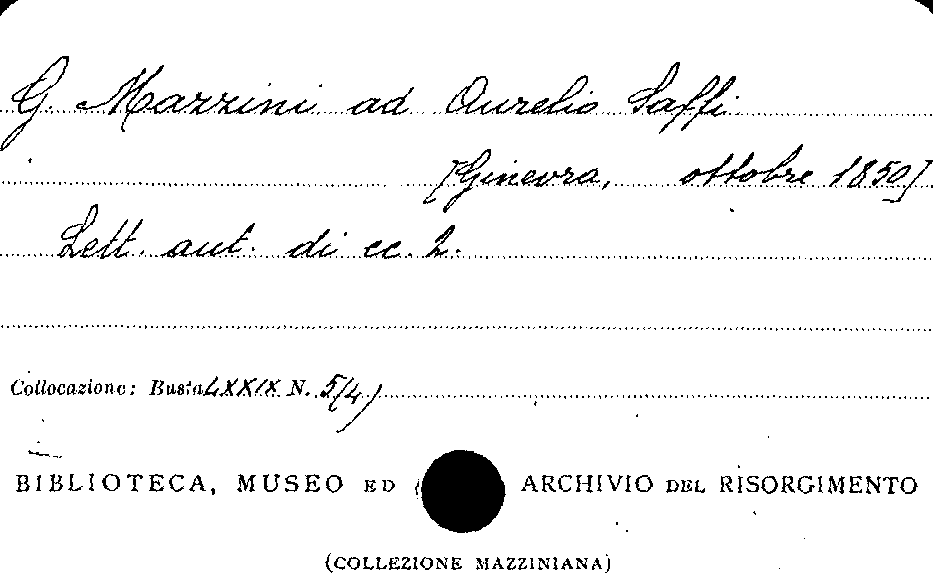 G. Mazzini ad Aurelio Saffi.
[Ginevra, ottobre 1850]
Lett. aut. di cc. 2.
Collocazione: Busta LXXIX N. 5(4)
BIBLIOTECA, MUSEO ED ARCHIVIO DEL RISORGIMENTO
(COLLEZIONE MAZZINIANA)